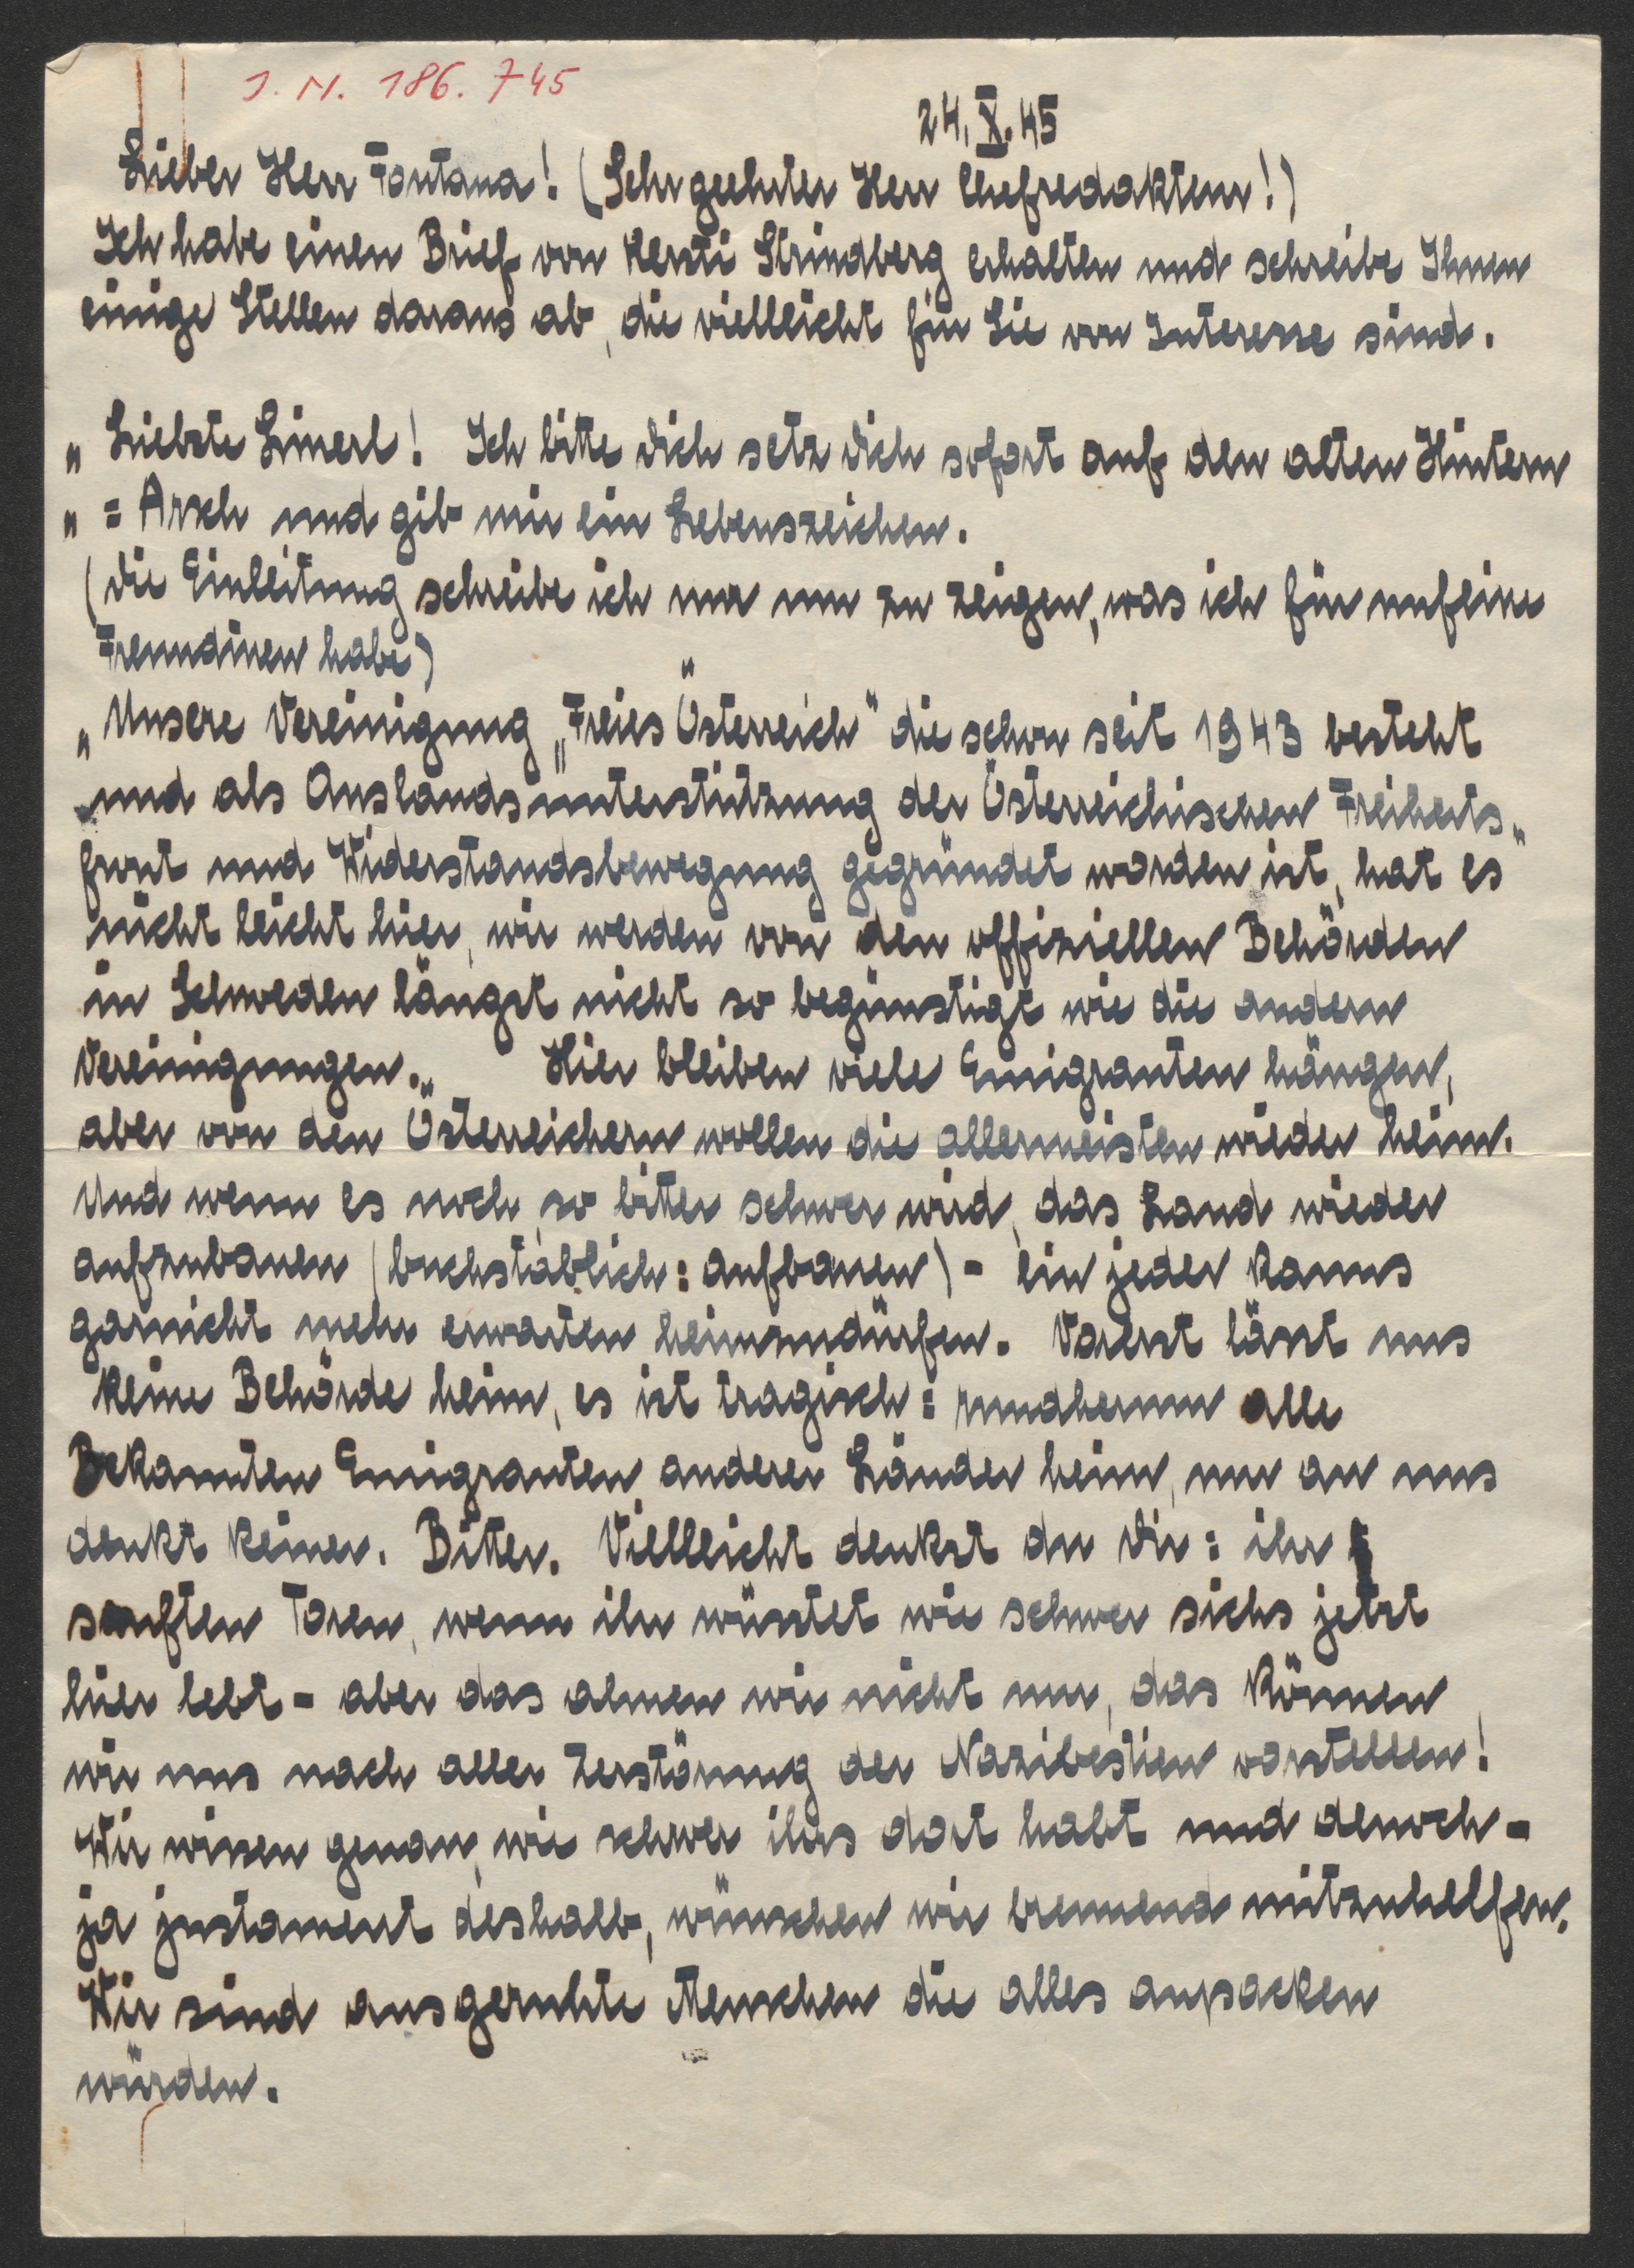 J. N. 186.745
24. X. 45
Lieber Herr Fontana! (Sehr geehrter Herr Chefredakteur!)
Ich habe einen Brief von Kersti Strindberg erhalten und schreibe Ihnen
einige Stellen daraus ab, die vielleicht für Sie von Interesse sind.
„Liebste Linerl! Ich bitte dich setz dich sofort auf den alten Hintern
„= Arsch und gib mir ein Lebenszeichen.
(die Einleitung schreibe ich nur um zu zeigen, was ich für unfeine
Freundinen habe)
„Unsere Vereinigung „Freies Österreich" die schon seit 1943 besteht
und als Auslandsunterstützung der Österreichischen Freiheits„
front und Widerstandsbewegung gegründet worden ist, hat es"
nicht leicht hier, wir werden von den offiziellen Behörden
in Schweden längst nicht so begünstigt wie die andern
Vereinigungen.„ Hier bleiben viele Emigranten hängen,
aber von den Österreichern wollen die allermeisten wieder heim.
Und wenn es noch so bitter schwer wird, das Land wieder
aufzubauen (buchstäblich: aufbauen) - ein jeder kanns
garnicht mehr erwarten heimzudürfen. Vorerst lässt uns
keine Behörde heim, es ist tragisch: rundherum alle
Bekannten Emigranten anderer Länder heim, nur an uns
denkt keiner. Bitter. Vielleicht denkst du dir: ihr
sanften Toren, wenn ihr wüsstet wie schwer sichs jetzt
hier lebt - aber das ahnen wir nicht nur, das können
wir uns nach aller Zerstörung der Nazibestien vorstellen!
Wir wissen genau, wie schwer ihrs dort habt und dennoch -
ja justament deshalb, wünschen wir brennend mitzuhelfen.
Wir sind ausgeruhte Menschen die alles anpacken
würden.